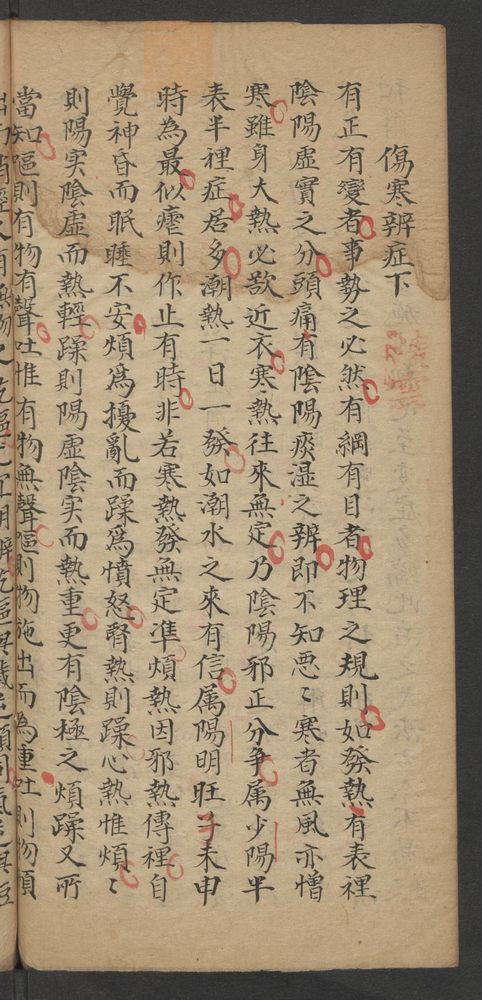 傷寒辨症下
有正有變者事勢之必然有綱有目者物理之規則如發熱有表裡
陰陽虛實之分頭痛有陰陽痰湿之辨即不知惡〻寒者無風亦憎
寒雖身大熱必欲近衣寒熱往來無定乃陰陽邪正分争属少陽半
表半裡症居多潮熱一日一發如潮水之來有信属陽明旺于未申
時為最似瘧則作止有時非若寒熱發無定準煩熱因邪熱傳裡自
覺神昏而眠睡不安煩為擾亂而躁為憤怒腎熱則躁心熱惟煩〻
則陽实陰虛而熱輕躁則陽虛陰实而熱重更有陰極之煩躁又所
當知嘔則有物有聲吐惟有物無聲嘔則物施出而為重吐則物頃